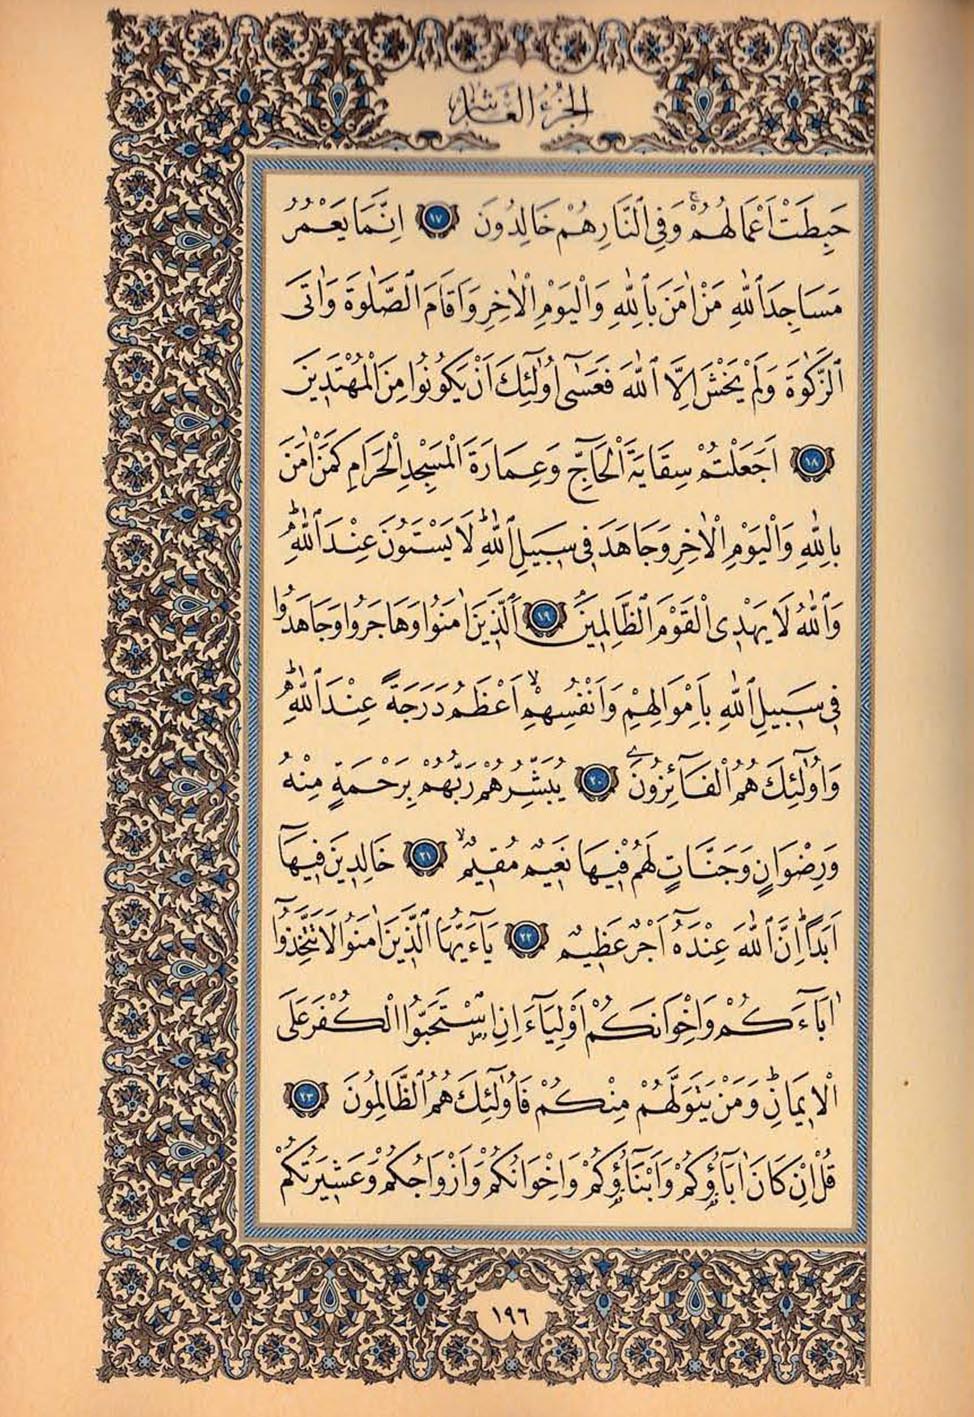 الجزء العاشر
حَبِطَتْ اَعْمَالُهُمْۚ وَفِي النَّارِ هُمْ خَالِدُونَ ﴿١٧﴾ اِنَّمَا يَعْمُرُ
مَسَاجِدَ اللّٰهِ مَنْ اٰمَنَ بِاللّٰهِ وَالْيَوْمِ الْاٰخِرِ وَاَقَامَ الصَّلٰوةَ وَاٰتَى
الزَّكٰوةَ وَلَمْ يَخْشَ اِلَّا اللّٰهَ فَعَسٰٓى اُو۬لٰٓئِكَ اَنْ يَكُونُوا مِنَ الْمُهْتَدِينَ
﴿١٨﴾ اَجَعَلْتُمْ سِقَايَةَ الْحَٓاجِّ وَعِمَارَةَ الْمَسْجِدِ الْحَرَامِ كَمَنْ اٰمَنَ
بِاللّٰهِ وَالْيَوْمِ الْاٰخِرِ وَجَاهَدَ فِي سَبِيلِ اللّٰهِۜ لَا يَسْتَوُ۫نَ عِنْدَ اللّٰهِۜ
وَاللّٰهُ لَا يَهْدِي الْقَوْمَ الظَّالِمِينَۢ ﴿١٩﴾ اَلَّذِينَ اٰمَنُوا وَهَاجَرُوا وَجَاهَدُوا
فِي سَبِيلِ اللّٰهِ بِاَمْوَالِهِمْ وَاَنْفُسِهِمْۙ اَعْظَمُ دَرَجَةً عِنْدَ اللّٰهِۜ
وَاُو۬لٰٓئِكَ هُمُ الْفَٓائِزُونَ ﴿٢٠﴾ يُبَشِّرُهُمْ رَبُّهُمْ بِرَحْمَةٍ مِنْهُ
وَرِضْوَانٍ وَجَنَّاتٍ لَهُمْ فِيهَا نَعِيمٌ مُقِيمٌۙ ﴿٢١﴾ خَالِدِينَ فِيهَٓا
اَبَدًاۜ اِنَّ اللّٰهَ عِنْدَهُٓ اَجْرٌ عَظِيمٌ ﴿٢٢﴾ يَٓا اَيُّهَا الَّذِينَ اٰمَنُوا لَا تَتَّخِذُٓوا
اٰبَٓاءَكُمْ وَاِخْوَانَكُمْ اَوْلِيَٓاءَ اِنِ اسْتَحَبُّوا الْكُفْرَ عَلَى
الْاِيمَانِۜ وَمَنْ يَتَوَلَّهُمْ مِنْكُمْ فَاُو۬لٰٓئِكَ هُمُ الظَّالِمُونَ ﴿٢٣﴾
قُلْ اِنْ كَانَ اٰبَٓاؤُ۬كُمْ وَاَبْنَٓاؤُ۬كُمْ وَاِخْوَانُكُمْ وَاَزْوَاجُكُمْ وَعَشِيرَتُكُمْ
١٩٦